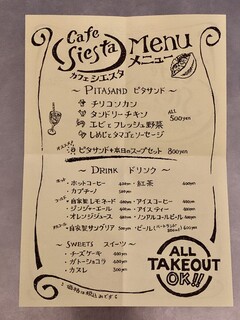 Cafe Siesta Menu
カフェシエスタ メニュー
〜 PITASAND ピタサンド 〜
チリコンカン
タンドリーチキン ALL
エビとフレッシュ野菜 500yen
しめじとタマゴとソーセージ
ピタサンド+本日のスープセット 800yen
〜 DRINK ドリンク 〜
ホットコーヒー 紅茶
カプチーノ
自家製レモネード アイスコーヒー
ジンジャーエール アイスティー
オレンジジュース ノンアルコールビール
自家製サングリア ビール
〜 SWEETS スイーツ 〜
チーズケーキ
ガトーショコラ
カヌレ
ALL TAKEOUT OK!!